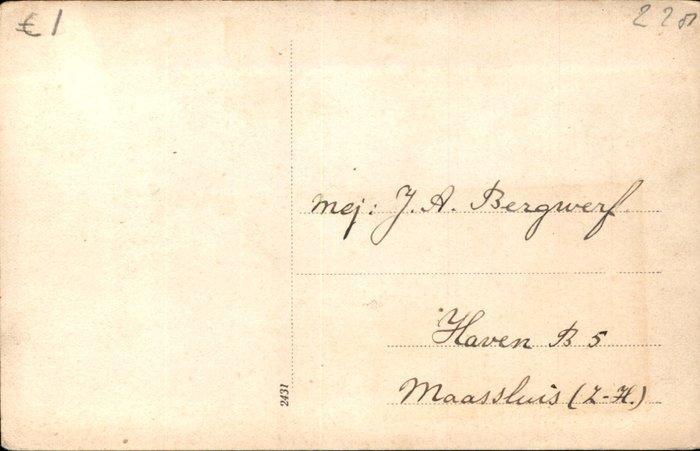 € 1
mej: J. A. Bergwerf
Haven B 5
Maassluis (Z-H.)
2431